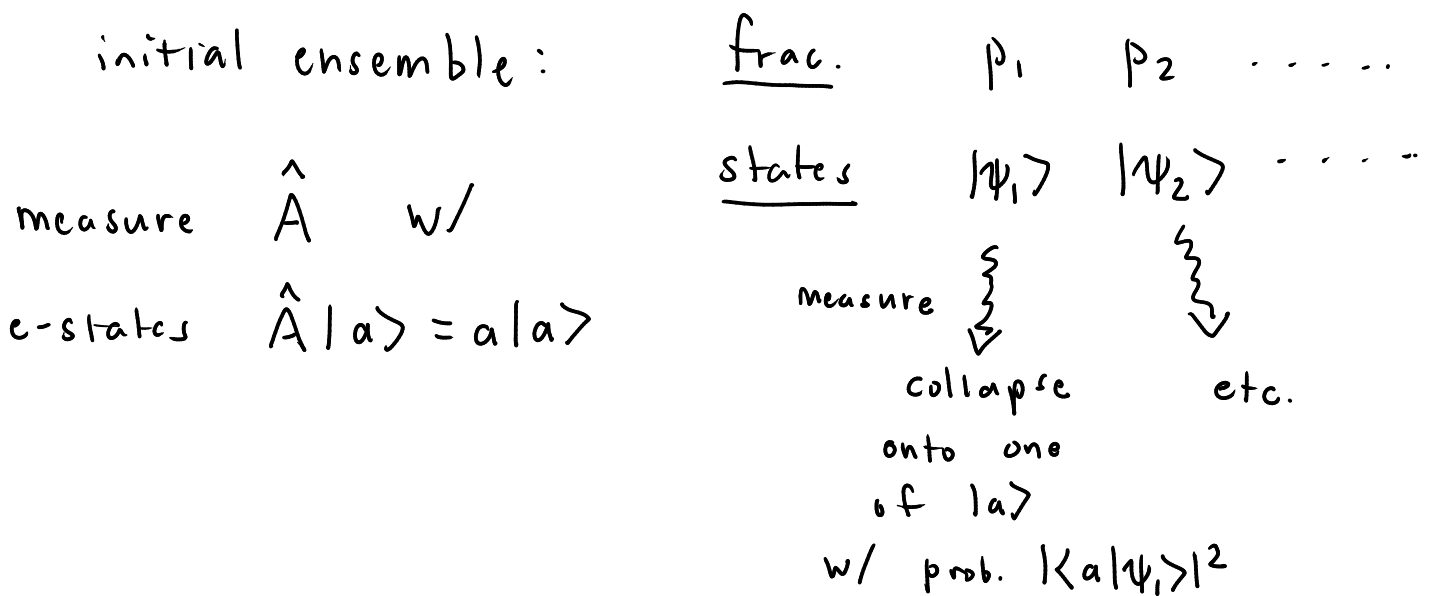 initial ensemble:
measure Â w/
e-states Â|a> = a|a>
frac. p₁ p₂ .....
states |ψ₁> |ψ₂> .....
measure
collapse etc.
onto one
of |a>
w/ prob. |<a|ψ₁>|²